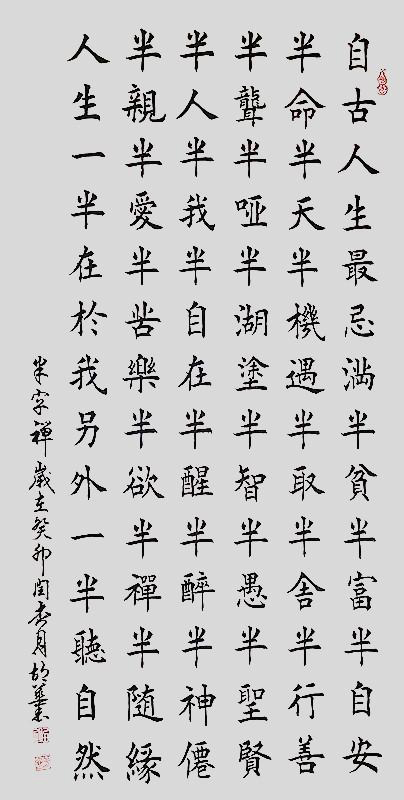 自古人生最忌满半貧半富半自安
半命半天半機遇半取半舍半行善
半聾半哑半湖塗半智半愚半聖賢
半人半我半自在半醒半醉半神僊
半親半愛半苦樂半欲半禪半隨緣
人生一半在於我另外一半聽自然
半字禪歲在癸卯闰春月胡